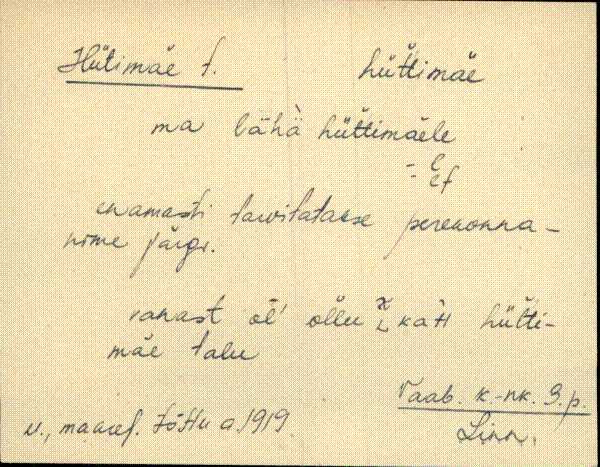 Hütimäe t. hüttimäe
ma lähä hüttimäele
enamasti tarvitatakse perekonna-
nime järgi.
vanast ol' ollu kat́ hütti-
mäe talu
Vaab. k.-nk. S.p.
u., maaref. tõttu a. 1919
Linn.